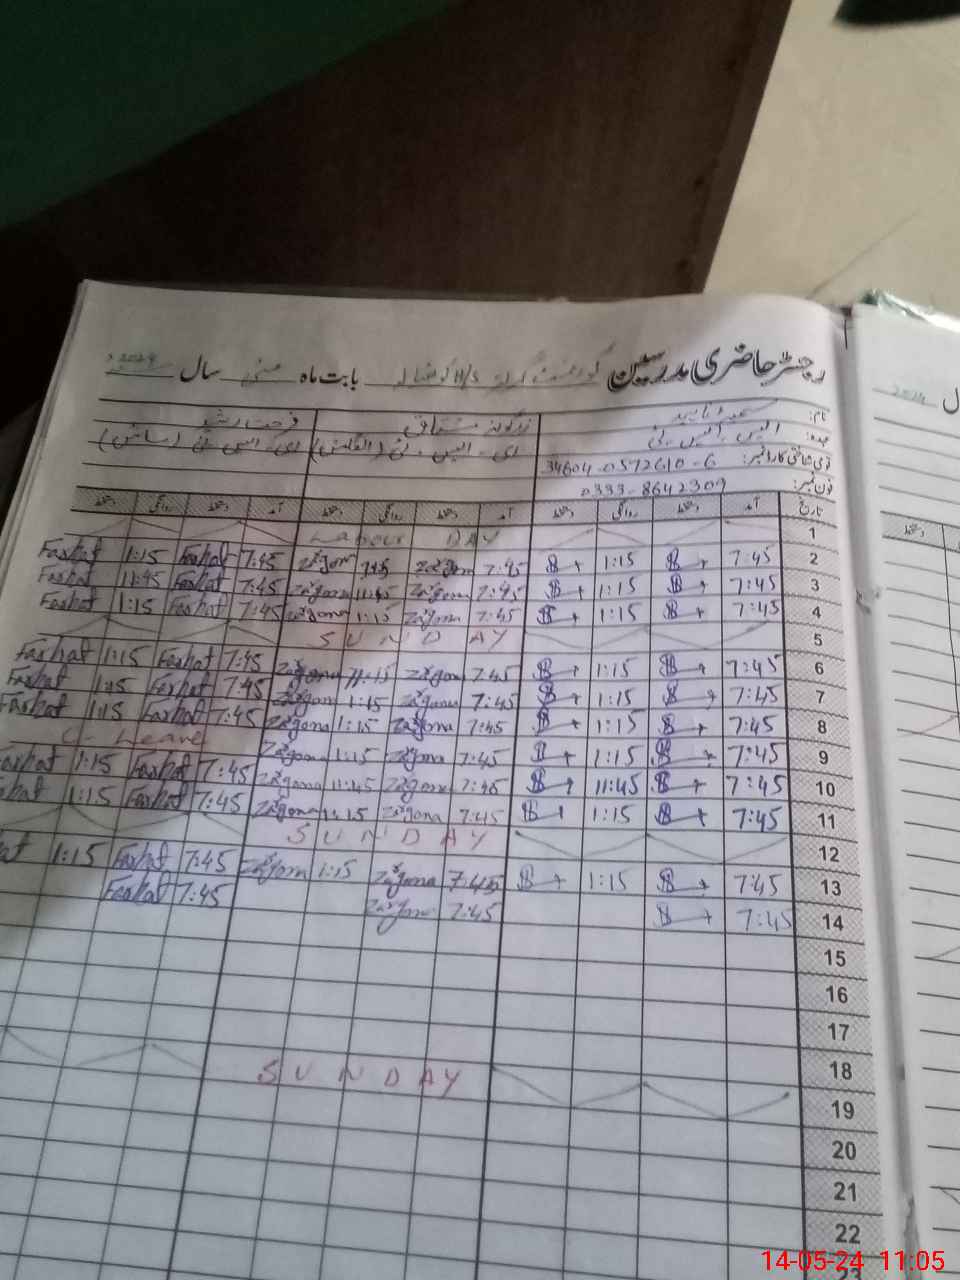 رجسٹر حاضری مدرسین گورنمنٹ گرلز H/S بابت ماہ مئی سال 2024ء
نام: سمیرا ناہید
عہدہ: ایس۔ایس۔ٹی
قومی شناختی کارڈ نمبر: 34604-0572610-6
فون نمبر: 0333-8642309
زرگونہ مشتاق
ای۔ایس۔ٹی
فرحت رشید
ای۔ایس۔ٹی (سائنس)
تاریخ آمد دستخط روانگی دستخط آمد دستخط روانگی دستخط آمد دستخط روانگی دستخط
1 Labour DAY
2 7:45 1:15 7:45 Zargona 1:15 7:45 Farhat 1:15 Farhat
3 7:45 1:15 7:45 Zargona 11:45 Zargona 7:45 Farhat 11:45 Farhat
4 7:45 1:15 7:45 Zargona 1:15 Zargona 7:45 Farhat 1:15 Farhat
5 SUNDAY
6 7:45 1:15 7:45 Zargona 1:15 Zargona 7:45 Farhat 1:15 Farhat
7 7:45 1:15 7:45 Zargona 1:15 Zargona 7:45 Farhat 1:15 Farhat
8 7:45 1:15 7:45 Zargona 1:15 Zargona 7:45 Farhat 1:15 Farhat
9 7:45 1:15 7:45 Zargona 1:15 Zargona C-Leave
10 7:45 11:45 7:45 Zargona 11:45 Zargona 7:45 Farhat 1:15 Farhat
11 7:45 1:15 7:45 Zargona 1:15 Zargona 7:45 Farhat 1:15
12 SUNDAY
13 7:45 1:15 7:45 Zargona 1:15 Zargona 7:45 Farhat 1:15
14 7:45 7:45 Zargona 7:45 Farhat
15
16
17
18
19 SUNDAY
20
21
22
23
14-05-24 11:05